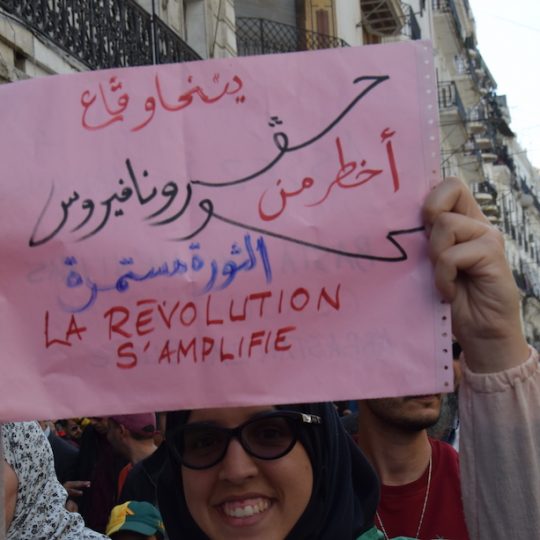 يتنحاو ڨاع
حڨـ
أخطر من رونا فيروس
كو
الثورة مستمرة
LA RÉVOLUTION
S'AMPLIFIE